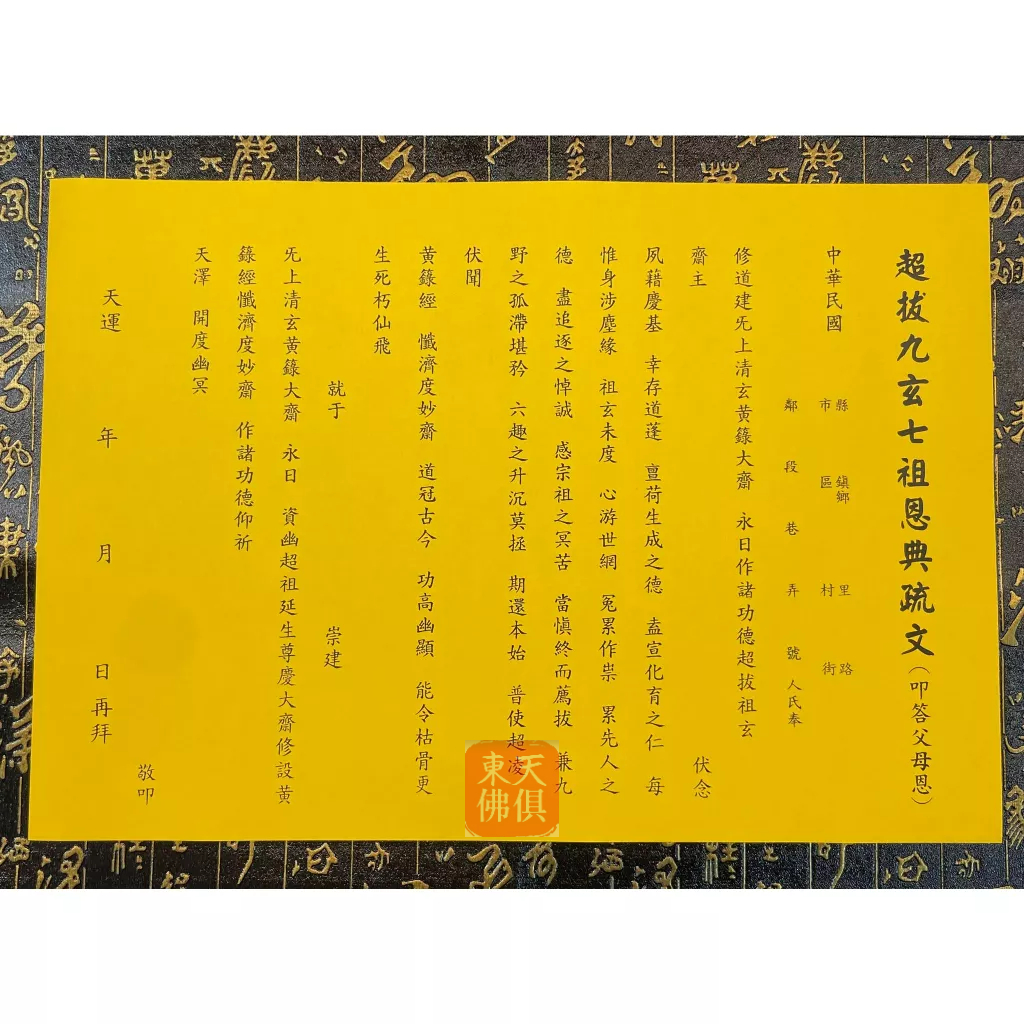 超拔九玄七祖恩典疏文（叩答父母恩）
中華民國 縣市 鎮鄉區 里村 路街
鄰 段 巷 弄 號 人氏奉
修道建旡上清玄黃籙大齋 永日作諸功德超拔祖玄
齋主 伏念
夙藉慶基 幸存道蓬 亶荷生成之德 盍宣化育之仁 每
惟身涉塵緣 祖玄未度 心游世網 冤累作祟 累先人之
德 盡追逐之悼誠 感宗祖之冥苦 當慎終而薦拔 兼九
野之孤滯堪矜 六趣之升沉莫拯 期還本始 普使超凌
伏聞
黃籙經 懺濟度妙齋 道冠古今 功高幽顯 能令枯骨更
生死朽仙飛
就于 崇建
旡上清玄黃籙大齋 永日 資幽超祖延生尊慶大齋修設黃
籙經懺濟度妙齋 作諸功德仰祈
天澤 開度幽冥
敬叩
天運 年 月 日再拜
天俱
東佛